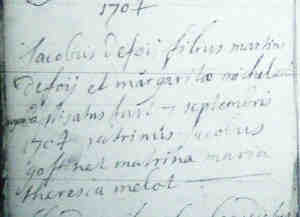 1704
Jacobus defoij filius martini
defoij et margaritæ michel
baptisatus fuit 7 septembris
1704 patrinus jacobus
goffinet matrina maria
theresia melot